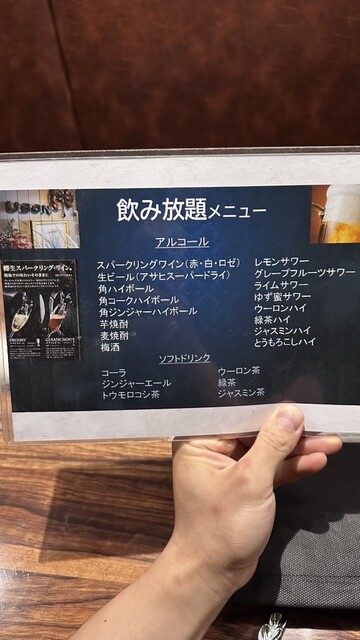 飲み放題メニュー
アルコール
樽生スパークリングワイン。
スパークリングワイン（赤・白・ロゼ）
生ビール（アサヒスーパードライ）
角ハイボール
角コークハイボール
角ジンジャーハイボール
芋焼酎
麦焼酎
梅酒
レモンサワー
グレープフルーツサワー
ライムサワー
ゆず蜜サワー
ウーロンハイ
緑茶ハイ
ジャスミンハイ
とうもろこしハイ
ソフトドリンク
コーラ
ジンジャーエール
トウモロコシ茶
ウーロン茶
緑茶
ジャスミン茶